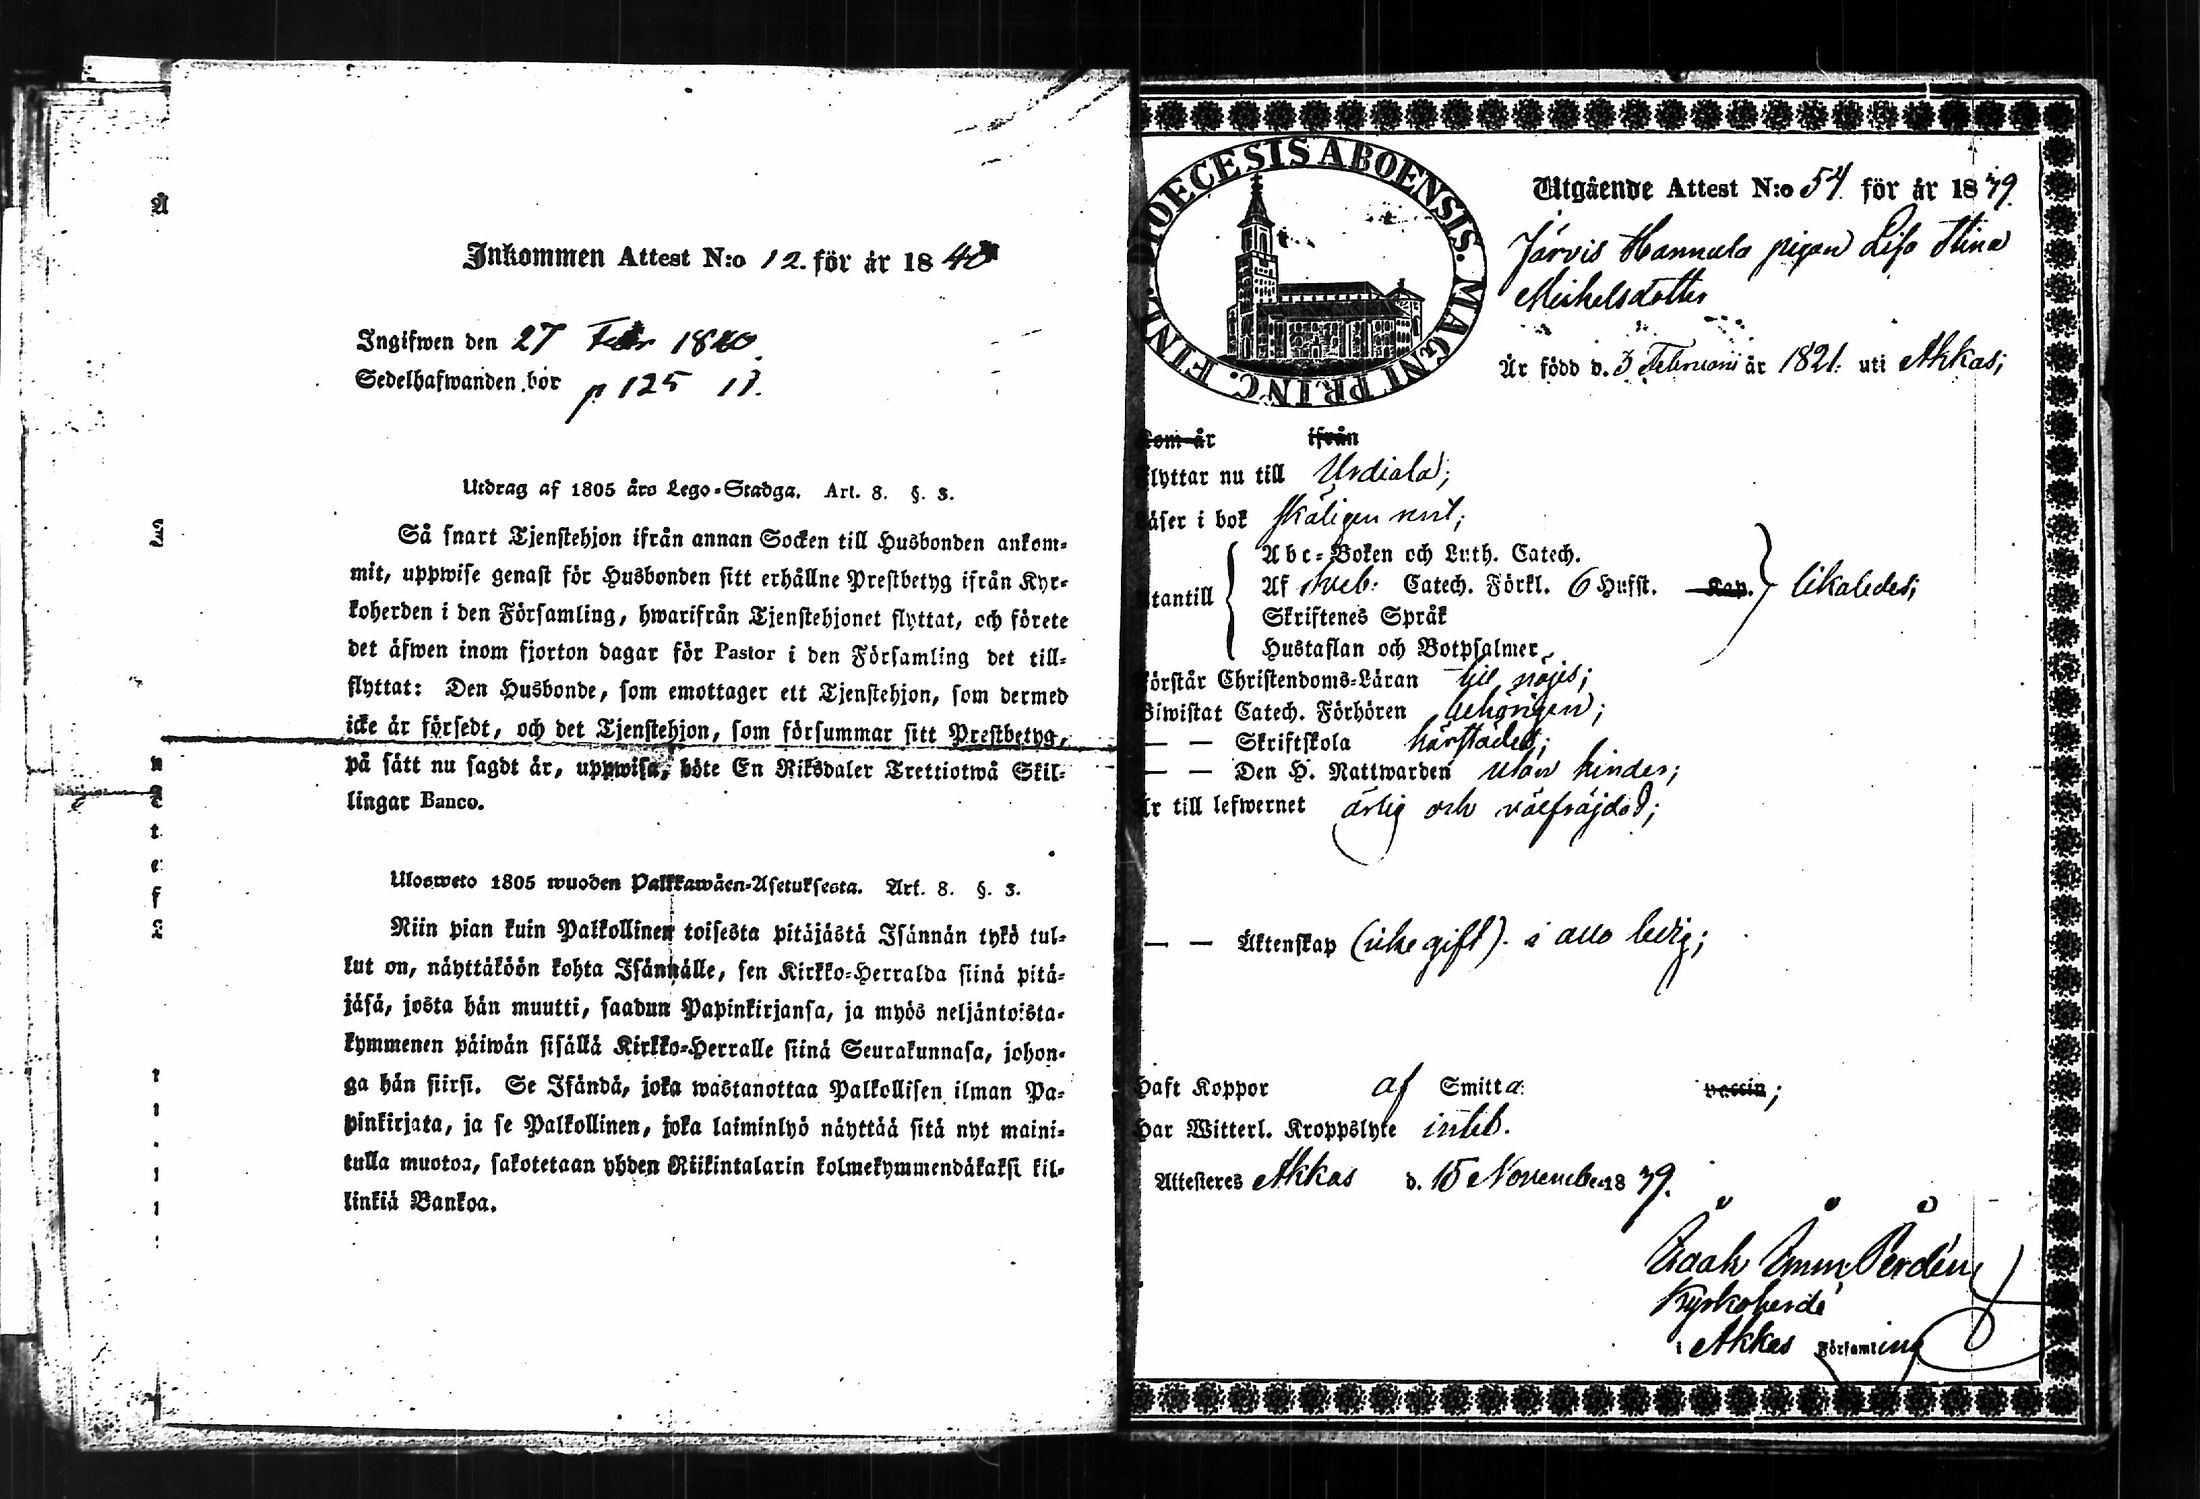 Inkommen Attest N:o 12. för år 1840
Ingifwen den 27 Febr 1840
Sedelhafwanden bor p 125 11.
Utdrag af 1805 års Lego-Stadga. Art. 8. §. 3.
Så snart Tjenstehjon ifrån annan Socken till Husbonden ankom-
mit, uppwise genast för Husbonden sitt erhållne Prestbetyg ifrån Kyr-
koherden i den Församling, hwarifrån Tjenstehjonet flyttat, och förete
det äfwen inom fjorton dagar för Pastor i den Församling det till-
flyttat: Den Husbonde, som emottager ett Tjenstehjon, som dermed
icke är försedt, och det Tjenstehjon, som försummar sitt Prestbetyg,
på sätt nu sagdt är, uppwisa, böte En Riksdaler Trettiotwå Skil-
lingar Banco.
Ulosweto 1805 wuoden Palkkawäen-Asetuksesta. Art. 8. §. 3.
Niin pian kuin Palkollinen toisesta pitäjästä Isännän tykö tul-
kut on, näyttäköön kohta Isännälle, sen Kirkko-Herralda siinä pitä-
jäsä, josta hän muutti, saadun Papinkirjansa, ja myös neljäntoista-
kymmenen päiwän sisällä Kirkko-Herralle siinä Seurakunnasa, johon-
ga hän siirsi. Se Isändä, joka wastanottaa Palkollisen ilman Pa-
pinkirjata, ja se Palkollinen, joka laiminlyö näyttää sitä nyt maini-
tulla muotoa, sakotetaan yhden Riikintalarin kolmekymmendäkaksi kil-
linkiä Bankoa.
DIOECESIS ABOENSIS. MAGNI PRINC. FINL.
Utgående Attest N:o 54 för år 1839.
Järvis Hannula pigan Lisa Stina
Michelsdotter
Är född d. 3 Februarii år 1821. uti Akkas;
Kom år ifrån
flyttar nu till Urdiala;
Läser i bok skäligen rent;
Utantill
Abc-Boken och Luth. Catech.
Af Sveb: Catech. Förkl. 6 Hufst. Kap.
Skriftenes Språk
Hustaflan och Botpsalmer
likaledes;
Förstår Christendoms-Läran till nöjes;
Biwistat Catech. Förhören behörigen;
— — Skriftskola härstädes;
— — Den H. Nattwarden utan hinder;
Är till lefwernet ärlig och välfräjdad;
— — Äktenskap (icke gift) i allo ledig;
Haft Koppor af Smitta vaccin;
Har Witterl. Kroppslyte intet.
Attesteres Akkas d. 15 November 1839.
Kyrkoherde
i Akkas Församling